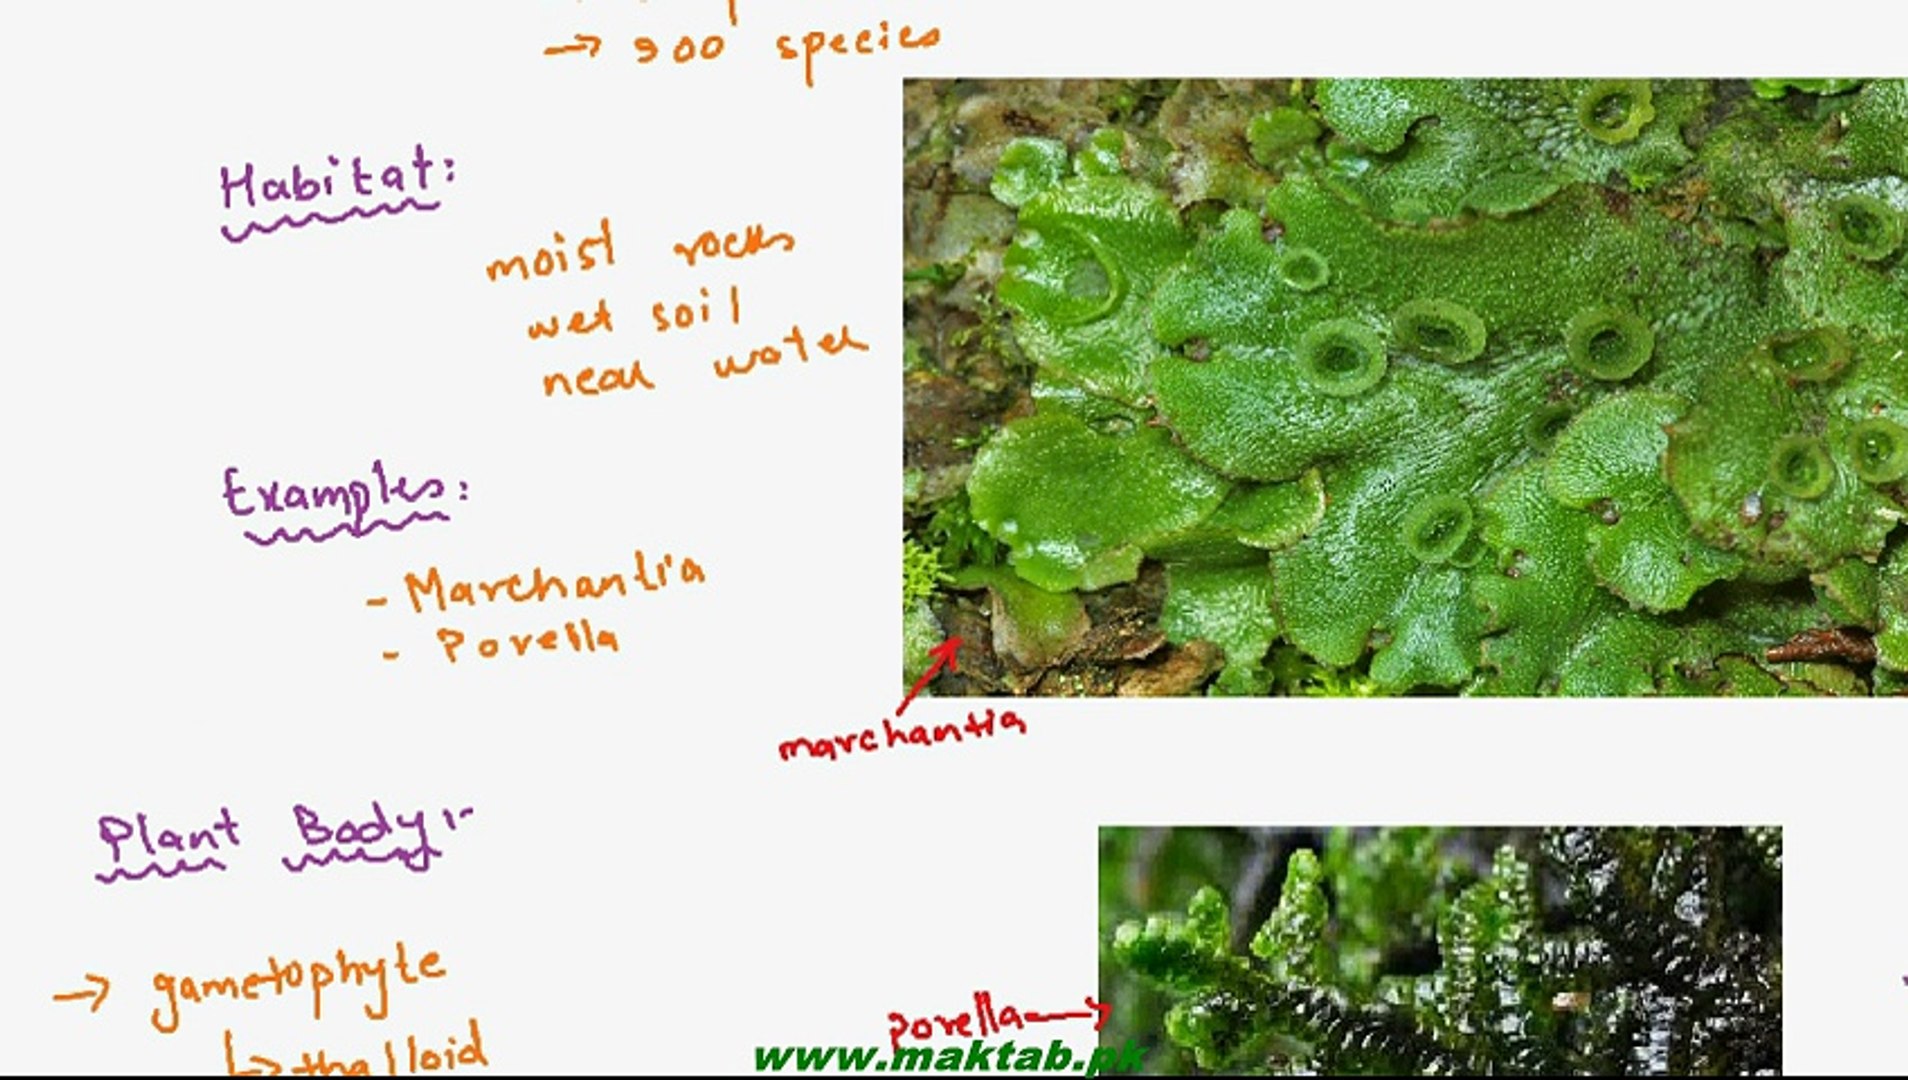 → 900 species
Habitat:
moist rocks
wet soil
near water
Examples:
- Marchantia
- Porella
marchantia
Plant Body:-
→ gametophyte
↳ thalloid
porella →
www.maktab.pk